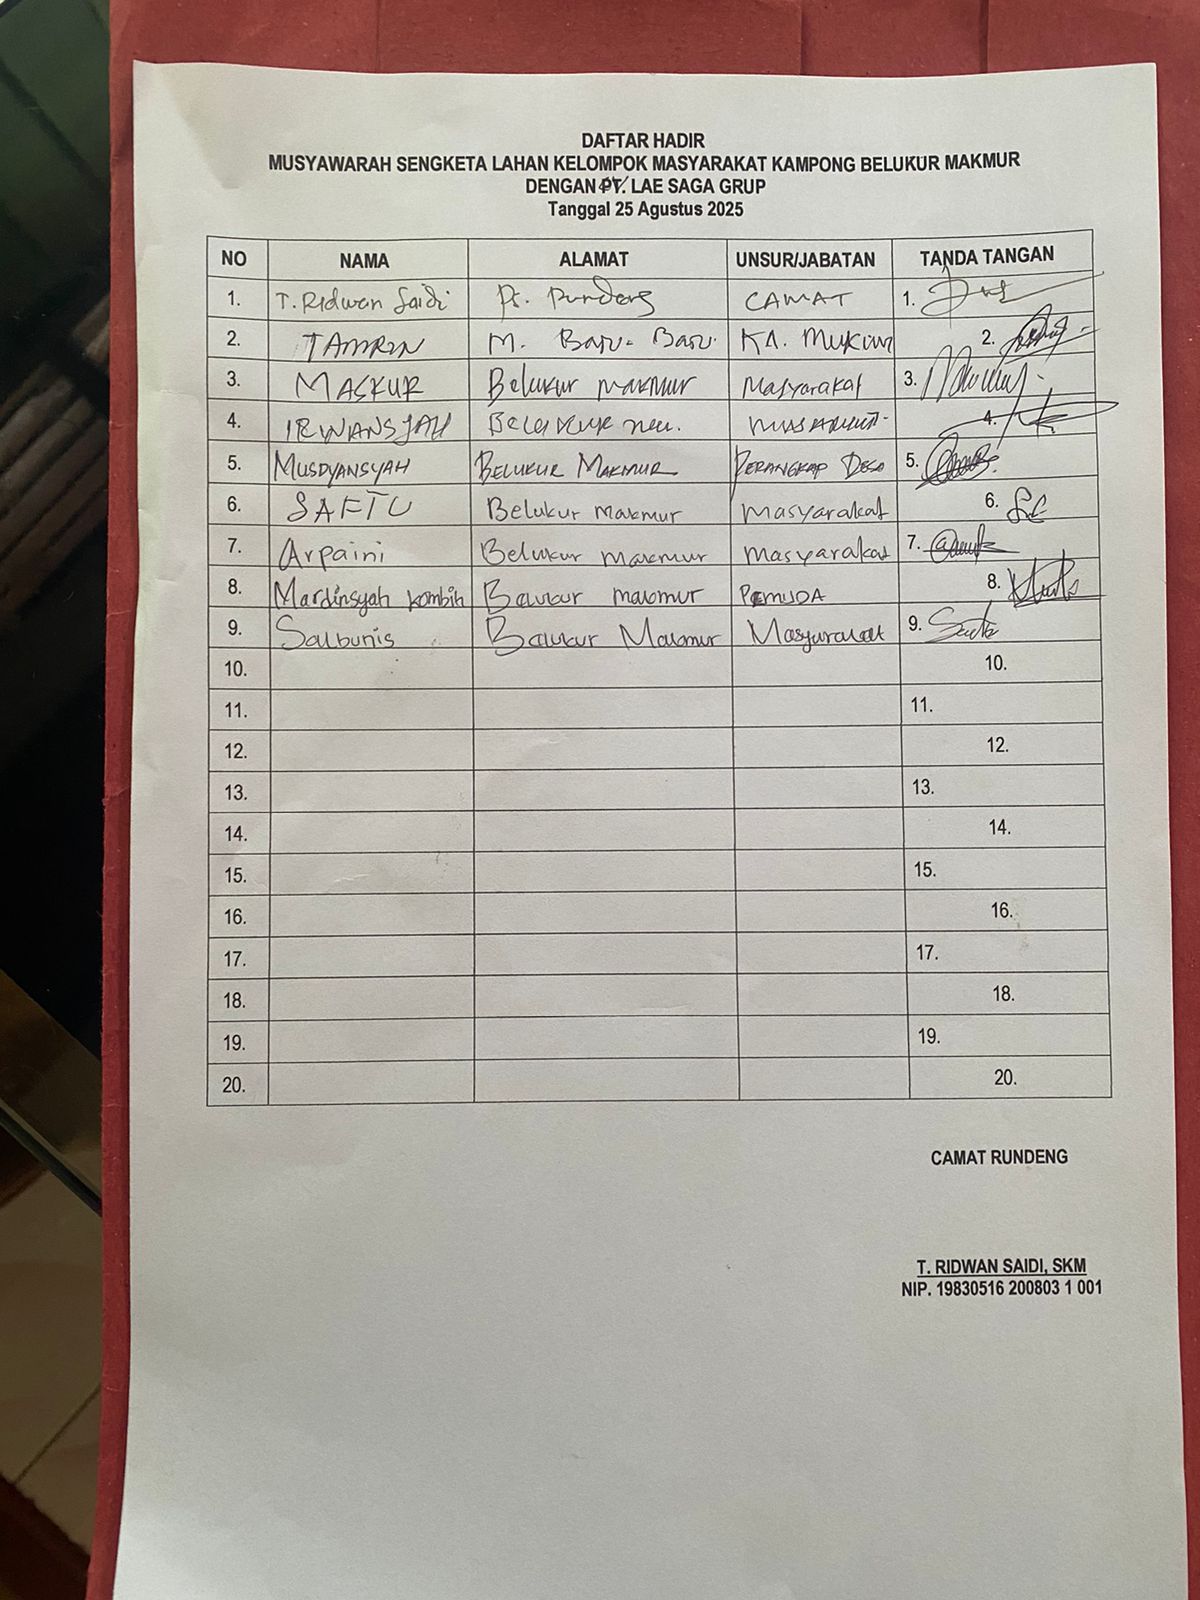 DAFTAR HADIR
MUSYAWARAH SENGKETA LAHAN KELOMPOK MASYARAKAT KAMPONG BELUKUR MAKMUR
DENGAN PT. LAE SAGA GRUP
Tanggal 25 Agustus 2025
NO NAMA ALAMAT UNSUR/JABATAN TANDA TANGAN
1. T. Ridwan Saidi CAMAT 1.
2. TAMRIN M. Baru-Baru. KA. Mukim 2.
3. MASKUR Belukur makmur Masyarakat 3.
4. IRWANSJAH 4.
5. MUSDYANSYAH BELUKUR MAKMUR PERANGKAP DESA 5.
6. SAFTU Belukur makmur masyarakat 6.
7. Arpaini Belukur makmur masyarakat 7.
8. Mardinsyah kombih Balukur makmur PEMUDA 8.
9. Salbunis Balukur Makmur Masyarakat 9.
10. 10.
11. 11.
12. 12.
13. 13.
14. 14.
15. 15.
16. 16.
17. 17.
18. 18.
19. 19.
20. 20.
CAMAT RUNDENG
T. RIDWAN SAIDI, SKM
NIP. 19830516 200803 1 001